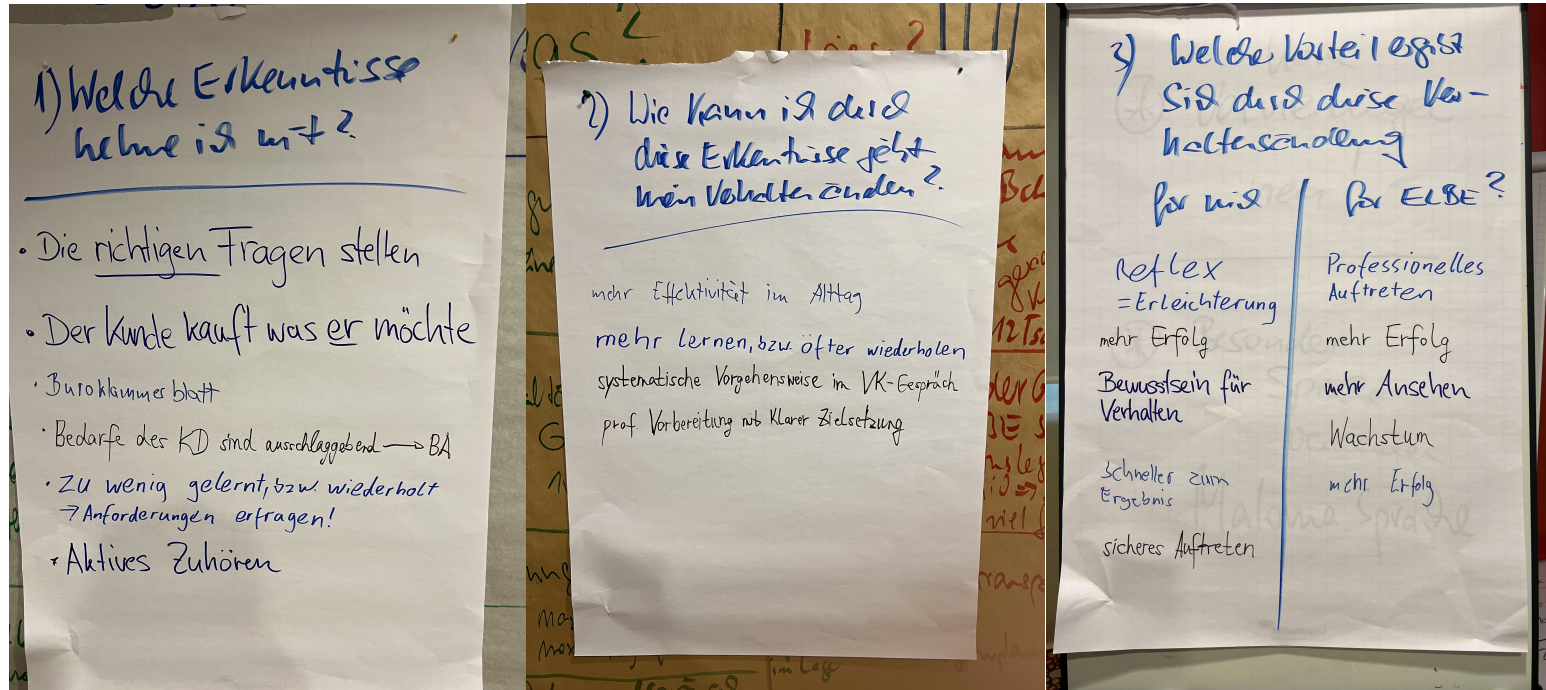 1) Welche Erkenntisse
nehme ich mit?
• Die richtigen Fragen stellen
• Der Kunde kauft was er möchte
• Büroklammerblatt
• Bedarfe des KD sind ausschlaggebend → BA
• Zu wenig gelernt, bzw. wiederholt
→ Anforderungen erfragen!
• Aktives Zuhören
2) Wie kann ich durch
diese Erkentnisse jetzt
mein Verhalten ändern?
mehr Effektivität im Alltag
mehr lernen, bzw. öfter wiederholen
systematische Vorgehensweise im VK-Gespräch
prof. Vorbereitung mit klarer Zielsetzung
3) Welche Vorteil ergibt
sich durch diese Ver-
haltensänderung
für mich
Reflex
= Erleichterung
mehr Erfolg
Bewusstsein für
Verhalten
schneller zum
Ergebnis
sicheres Auftreten
für ELBE?
Professionelles
Auftreten
mehr Erfolg
mehr Ansehen
Wachstum
mehr Erfolg